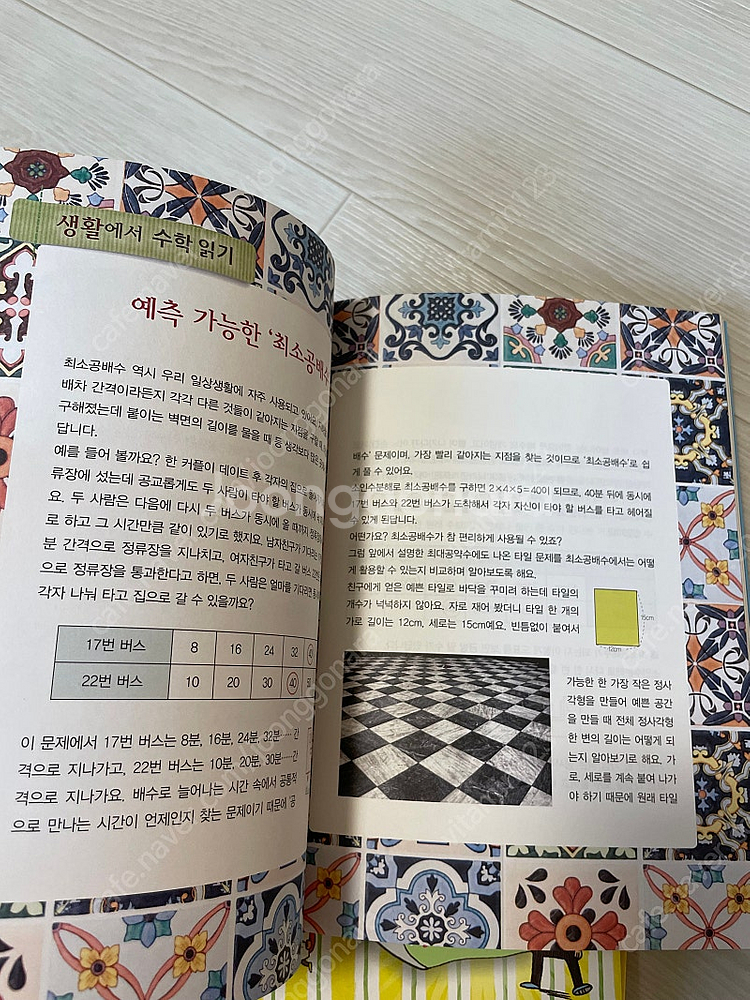 생활에서 수학 읽기
예측 가능한 '최소공배수
최소공배수 역시 우리 일상생활에 자주 사용되고 있어요.
배차 간격이라든지 각각 다른 것들이 같아지는 지점을 구할 때,
구해졌는데 붙이는 벽면의 길이를 물을 때 등 생각보다 많은
답니다.
예를 들어 볼까요? 한 커플이 데이트 후 각자의 집으로
류장에 섰는데 공교롭게도 두 사람이 타야 할 버스가 동시에
요. 두 사람은 다음에 다시 두 버스가 동시에 올 때까지
로 하고 그 시간만큼 같이 있기로 했지요. 남자친구가 기다리는
분 간격으로 정류장을 지나치고, 여자친구가 타고 갈 버스
으로 정류장을 통과한다고 하면, 두 사람은 얼마를 기다리면
각자 나눠 타고 집으로 갈 수 있을까요?
17번 버스 8 16 24 32
22번 버스 10 20 30 40
이 문제에서 17번 버스는 8분, 16분, 24분, 32분…… 간
격으로 지나가고, 22번 버스는 10분, 20분, 30분…… 간
격으로 지나가요. 배수로 늘어나는 시간 속에서 공통적
으로 만나는 시간이 언제인지 찾는 문제이기 때문에 '공
배수' 문제이며, 가장 빨리 같아지는 지점을 찾는 것이므로 '최소공배수'로 쉽
게 풀 수 있어요.
소인수분해로 최소공배수를 구하면 2×4×5=40이 되므로, 40분 뒤에 동시에
17번 버스와 22번 버스가 도착해서 각자 자신이 타야 할 버스를 타고 헤어질
수 있게 된답니다.
어떤가요? 최소공배수가 참 편리하게 사용될 수 있죠?
그럼 앞에서 설명한 최대공약수에도 나온 타일 문제를 최소공배수에서는 어떻
게 활용할 수 있는지 비교하며 알아보도록 해요.
친구에게 얻은 예쁜 타일로 바닥을 꾸미려 하는데 타일의
개수가 넉넉하지 않아요. 자로 재어 봤더니 타일 한 개의
가로 길이는 12cm, 세로는 15cm예요. 빈틈없이 붙여서
15cm
12cm
가능한 한 가장 작은 정사
각형을 만들어 예쁜 공간
을 만들 때 전체 정사각형
한 변의 길이는 어떻게 되
는지 알아보기로 해요. 가
로, 세로를 계속 붙여 나가
야 하기 때문에 원래 타일